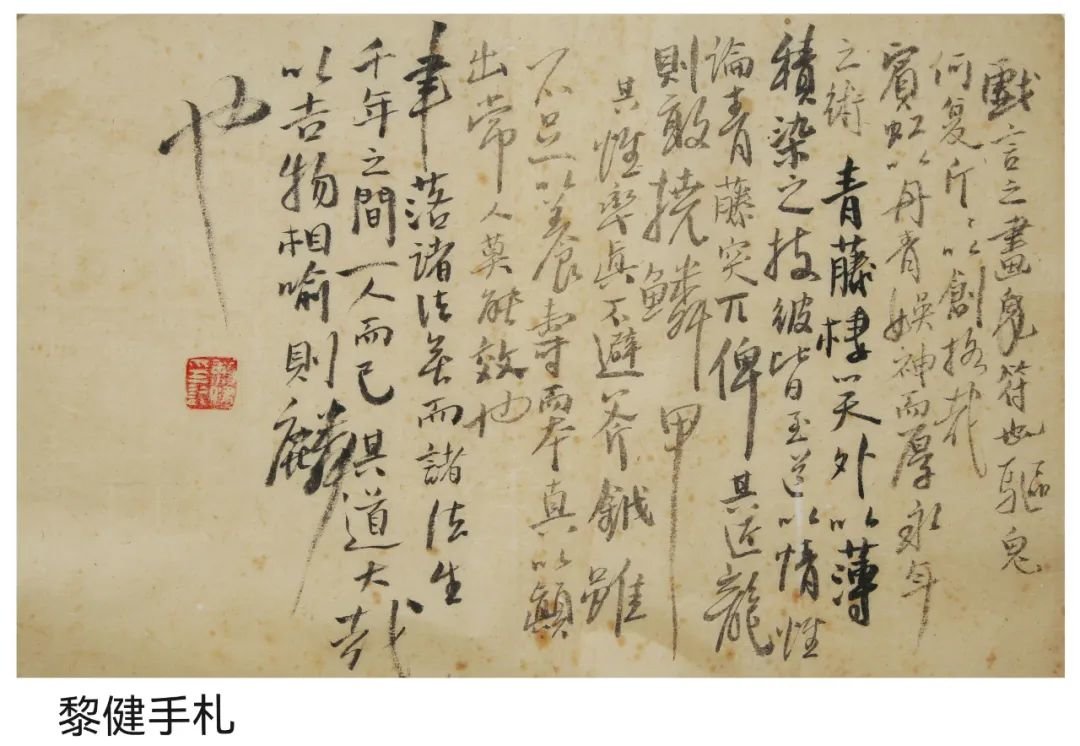 戲言之畫鬼符也驅鬼
何复斤斤以創格哉
賓虹以丹青娛神而厚永年
之術 青藤棲笑天外以薄
積染之技彼皆至道以情惟
論青藤突兀俾其近龍
則敢撓鱗甲
其惟率真不避斧鉞雖
不足以養壽而奉真以顛
出常人莫能效也
聿落諸法若而諸法生
千年之間一人而已 其道大哉
以吉物相喻則麟
也
黎健手札